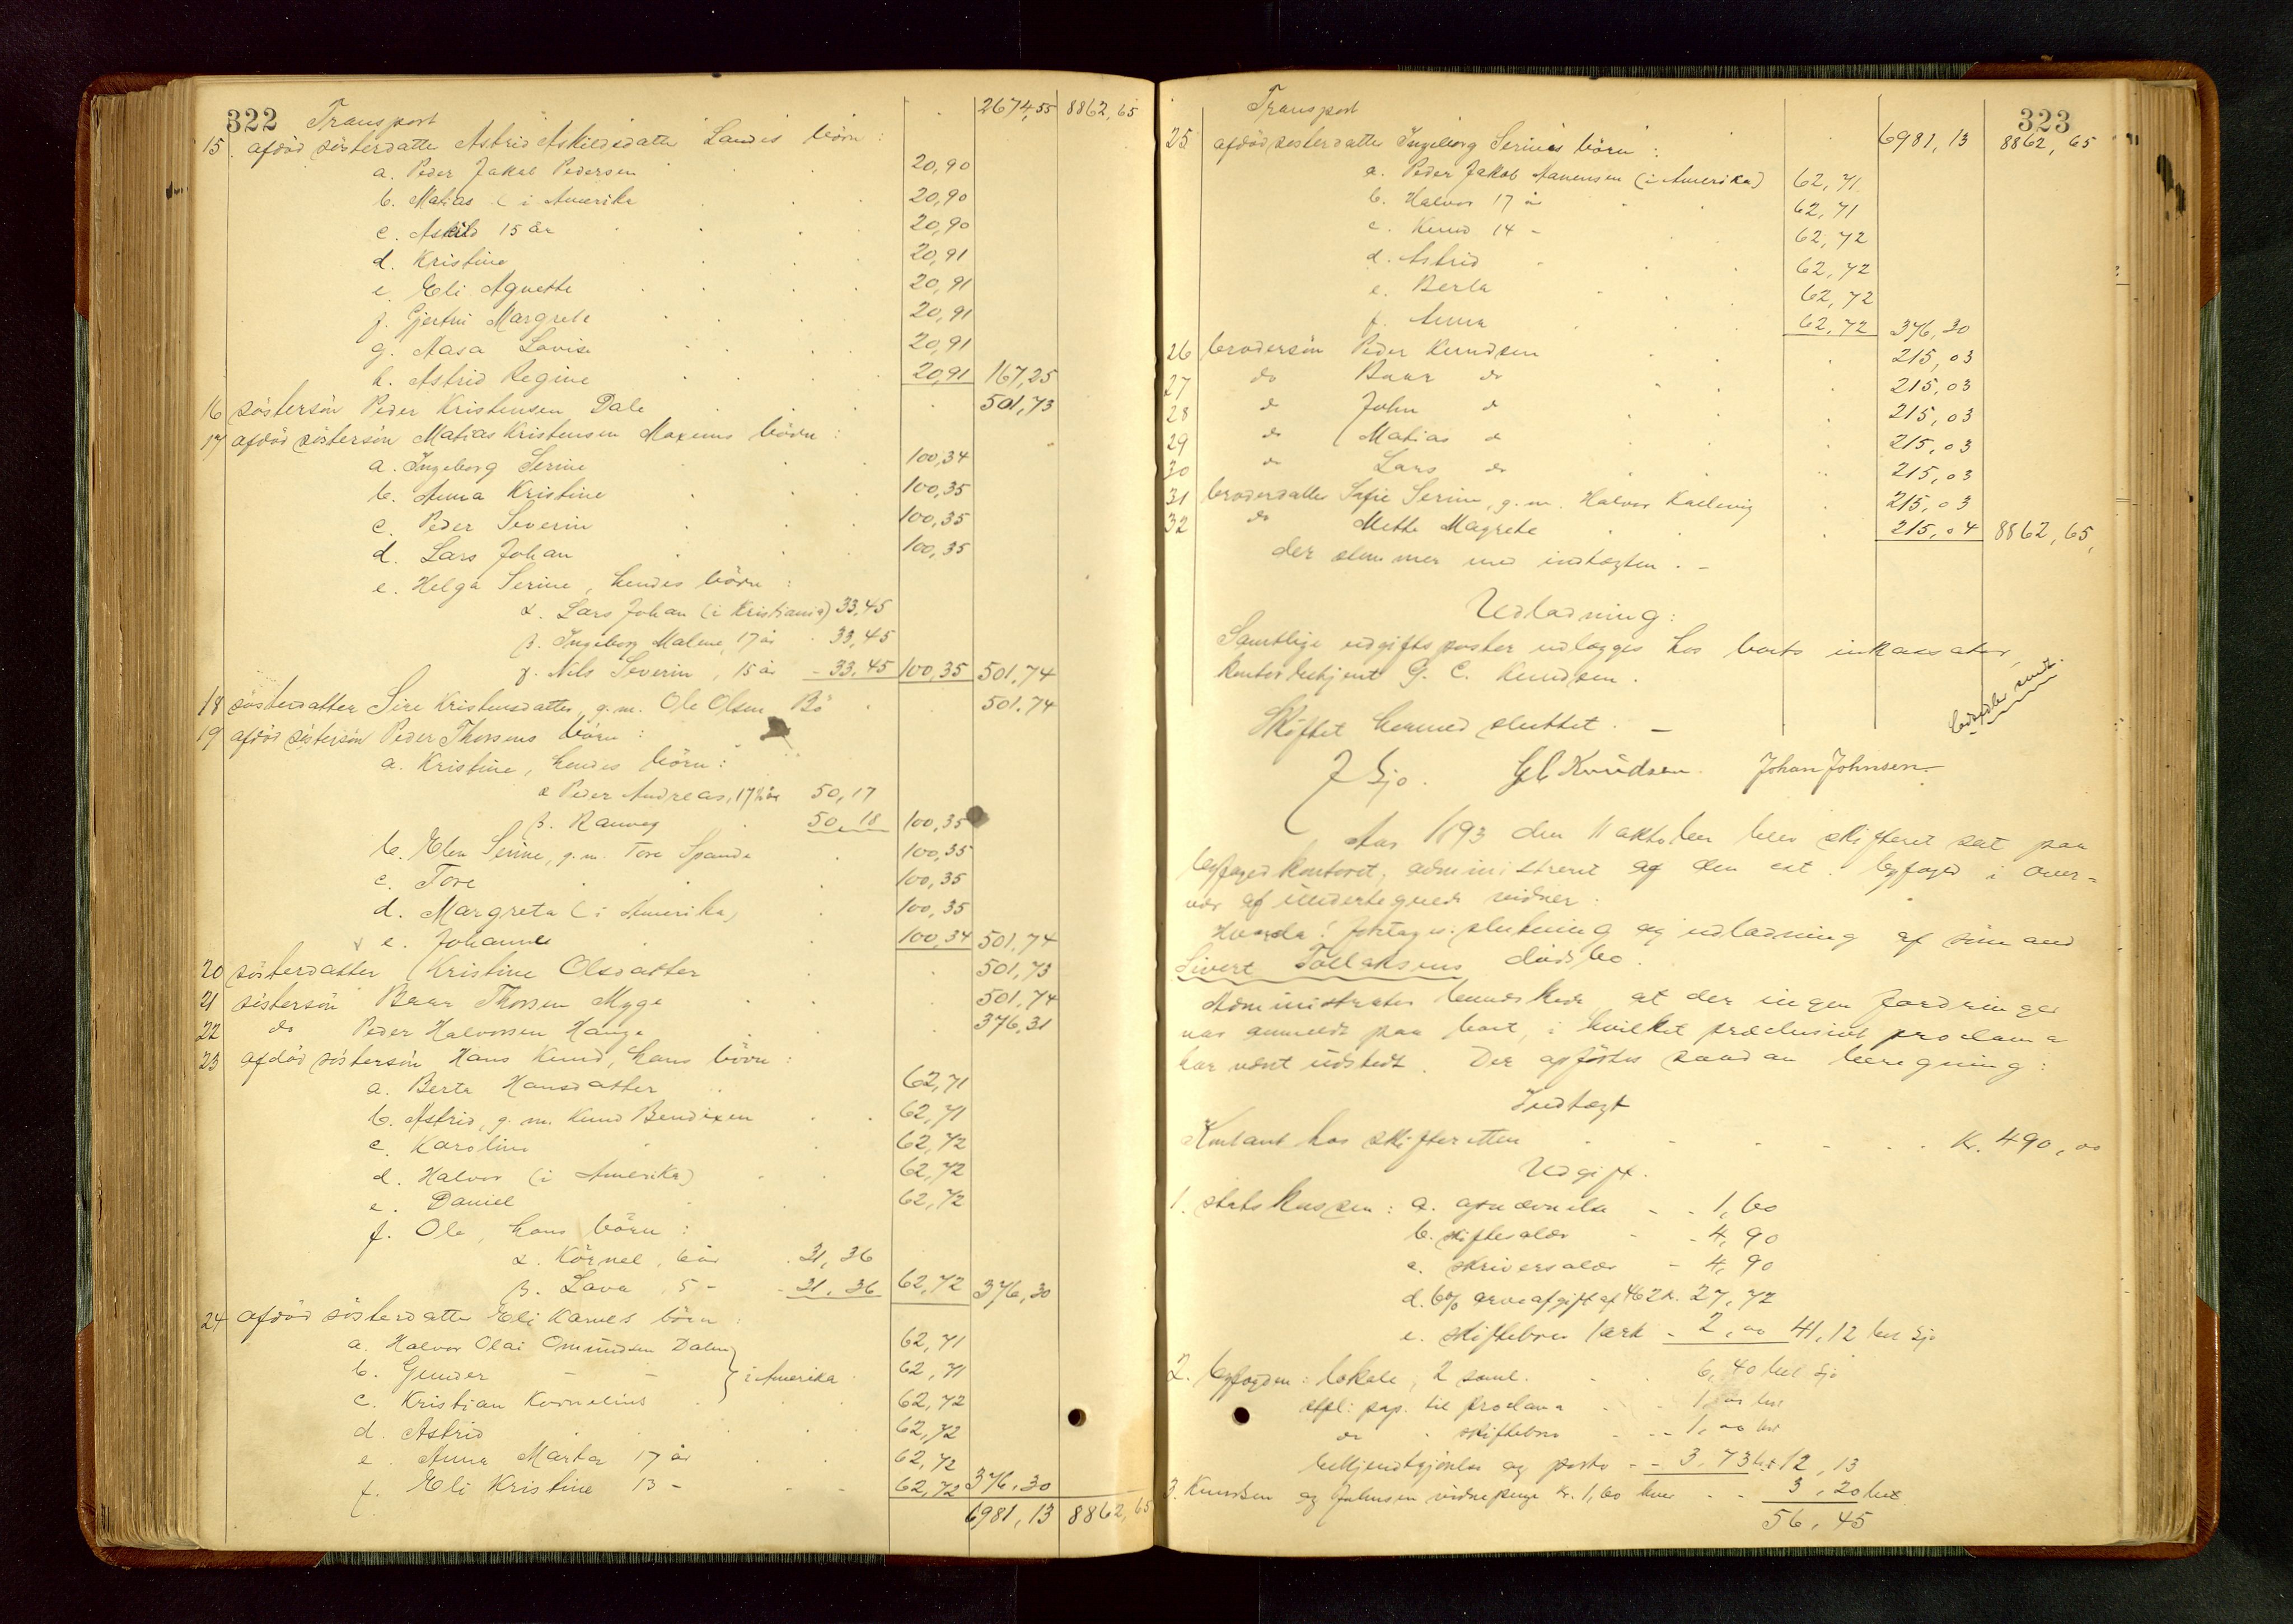 322 Transport 2674,55 8862,65
15. afdöd sösterdatter Astrid Askildsdatter Landes börn:
a. Peder Jakob Pedersen 20,90
b. Matias (i Amerika 20,90
c. Askild 15 år 20,90
d. Kristine 20,91
e. Eli Agnette 20,91
f. Gjertrui Margrete 20,91
g. Aasa Lovise 20,91
h. Astrid Regine 20,91 167,25
16 söstersön Peder Kristensen Dale 501,73
17 afdöd söstersön Matias Kristensen Moxeuns börn:
a. Ingeborg Serine 100,34
b. Anna Kristine 100,35
c. Peder Severin 100,35
d. Lars Johan 100,35
e. Helga Serine, hendes börn:
α. Lars Johan (i Kristiania) 33,45
β. Ingeborg Malene, 17 år 33,45
γ. Nils Severin, 15 år - 33,45 100,35 501,74
18 sösterdatter Sire Kristensdatter, g.m. Ole Olsen Bö 501,74
19 afdöd söstersön Peder Thorsens börn:
a. Kristine, hendes börn:
α Peder Andreas, 17½ år 50,17
β. Ranveg 50,18 100,35
b. Elen Serine, g.m. Tore Spande 100,35
c. Tore 100,35
d. Margreta (i Amerika) 100,35
e. Johannes 100,34 501,74
20 sösterdatter Kristine Olsdatter 501,73
21 söstersön Baar Thorsen Myge 501,74
22 do Peder Halvorsen Hauge 376,31
23 afdöd söstersön Hans Knud, hans börn:
a. Berta Hansdatter 62,71
b. Astrid, g.m. Knud Bendixen 62,71
c. Karoline 62,72
d. Halvor (i Amerika) 62,72
e. Daniel 62,72
f. Ole, hans börn:
α. Körnel, 6 år 31,36
β. Lava, 5 - 31,36 62,72 376,30
24 afdöd sösterdatter Eli Karnes börn:
a. Halvor Olai Omundsen Dalen 62,71
b. Gunder - - } i Amerika 62,71
c. Kristian Kornelius 62,72
d. Astrid 62,72
e. Anna Marta 17 år 62,72
f. Eli Kristine 13 - 62,72 376,30
6981,13 8862,65
Transport 323
25 afdöd sösterdatter Ingeborg Serines börn: 6981,13 8862,65
a. Peder Jakob Aanensen (i Amerika) 62,71
b. Halvor 17 år 62,71
c. Knud 14 - 62,72
d. Astrid 62,72
e. Berta 62,72
f. Anna 62,72 376,30
26 brodersön Peder Knudsen 215,03
27 do Baar do 215,03
28 do John do 215,03
29 do Matias do 215,03
30 do Lars do 215,03
31 broderdatter Sofie Serine, g.m. Halvor Kallevig 215,03
32 do Mette Magrete 215,04 8862,65,
der stemmer med indtægten. -
Udlodning:
Samtlige udgiftsposter udlægges hos boets inkassator,
kontorbetjent G. C. Knudsen.
Skiftet hermed sluttet. -
J Gjo. GC Knudsen. Johan Johnsen.
Aar 1893 den 11 oktober blev skifteret sat paa
byfogedkontoret, administreret af den est. byfoged i over=
vær af undertegnede vidner.
Hvorda: foretages slutning og udlodning af sömand
Sivert Tollaksens dödsbo.
Administrator bemærkede at der ingen fordringer
var anmeldt paa boet, i hvilket præclusivt proclama
har været udstedt. Der opförtes saadan beregning:
Indtægt
Kontant hos skifteretten Kr. 490,00
Udgift.
1. statskassen: a. opnævnelse - - 1,60
b. skiftesalær - - 4,90
c. skriversalær - 4,90
d. 6% arveafgift af 462 Kr. 27,72
e. skiftebrev 1 ark - 2,00 41,12 bet Gjo
2. byfogden: lokale, 2 saml. 6,40 bet Gjo
stpl: pap. til proclama 1,00 bet
do " skiftebrev - - 1,00 bet
bekjendtgjörelse og porto - - 3,73 bet 12,13
3. Knudsen og Johnsen vidnepenge Kr. 1,60 hver - - 3,20 bet
56,45